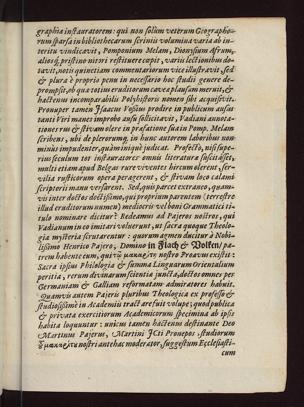 graphiæ instauratorem: qui non solùm veterum Geographo-
rum sparsa in bibliothecarum scriniis volumina varia ab in-
teritu vindicavit, Pomponium Melam, Dionysium Afrum,
aliosq; pristino nitori restituere cœpit, variis lectionibus do-
tavit, notis quinetiam commentariorum vice illustravit, sed
& plura è proprio penu in necessario hoc studii genere de-
prompsit, ob quæ totius eruditorum cavea plausum meruit, &
hactenus incomparabilis Polyhistoris nomen sibi acquisivit.
Pronuper tamen Isaacus Vossius prodire in publicum ausus
tanti Viri manes improbo ausu sollicitavit, Vadiani annota-
tiones rus & stivam olere in præfatione sua in Pomp. Melam
scribens, ubi de plerorumq; in hunc autorem laboribus non
minùs impudenter, quàm iniquè judicat. Profectò, nisi supe-
riori seculum tot instauratores omnis literatura suscitasset,
multi etiam apud Belgas rure viventes hircum olerent, ser-
vilia rusticorum opera peragerent, & stivam loco calami
scriptorii manu versarent. Sed, quis parcet extraneo, quam-
vis inter doctos doctissimo, qui proprium parentem (terrestre
illud eruditorum numen) mediocris vel boni Grammatici ti-
tulo nominare dicitur? Redeamus ad Pajeros nostros, qui
Vadianum in eo imitari voluerunt, ut sacra quoque Theolo-
giæ mysteria scrutarentur: quorum agmen ducitur à Nobi-
lissimo Henrico Pajero, Domino in Flach & Volken/ pa-
trem habente eum, qui nostro Proavus exstitit:
Sacra ipsius Philologia & summa Linguarum Orientalium
peritia, rerum divinarum scientiæ juncta, doctos omnes per
Germaniam & Galliam reformatam admiratores habuit.
Quamvis autem Pajeris pluribus Theologica ex professo &
studiosissimè in Academiis tractare fuit volupe; quod publica
& privata exercitiorum Academicorum specimina ab ipsis
habita loquuntur: unicus tamen hactenus destinante Deo
Martinus Pajerus, Martini ICti Pronepos, studiorum
nostri antehac moderator, suggestum Ecclesiasti-
cum